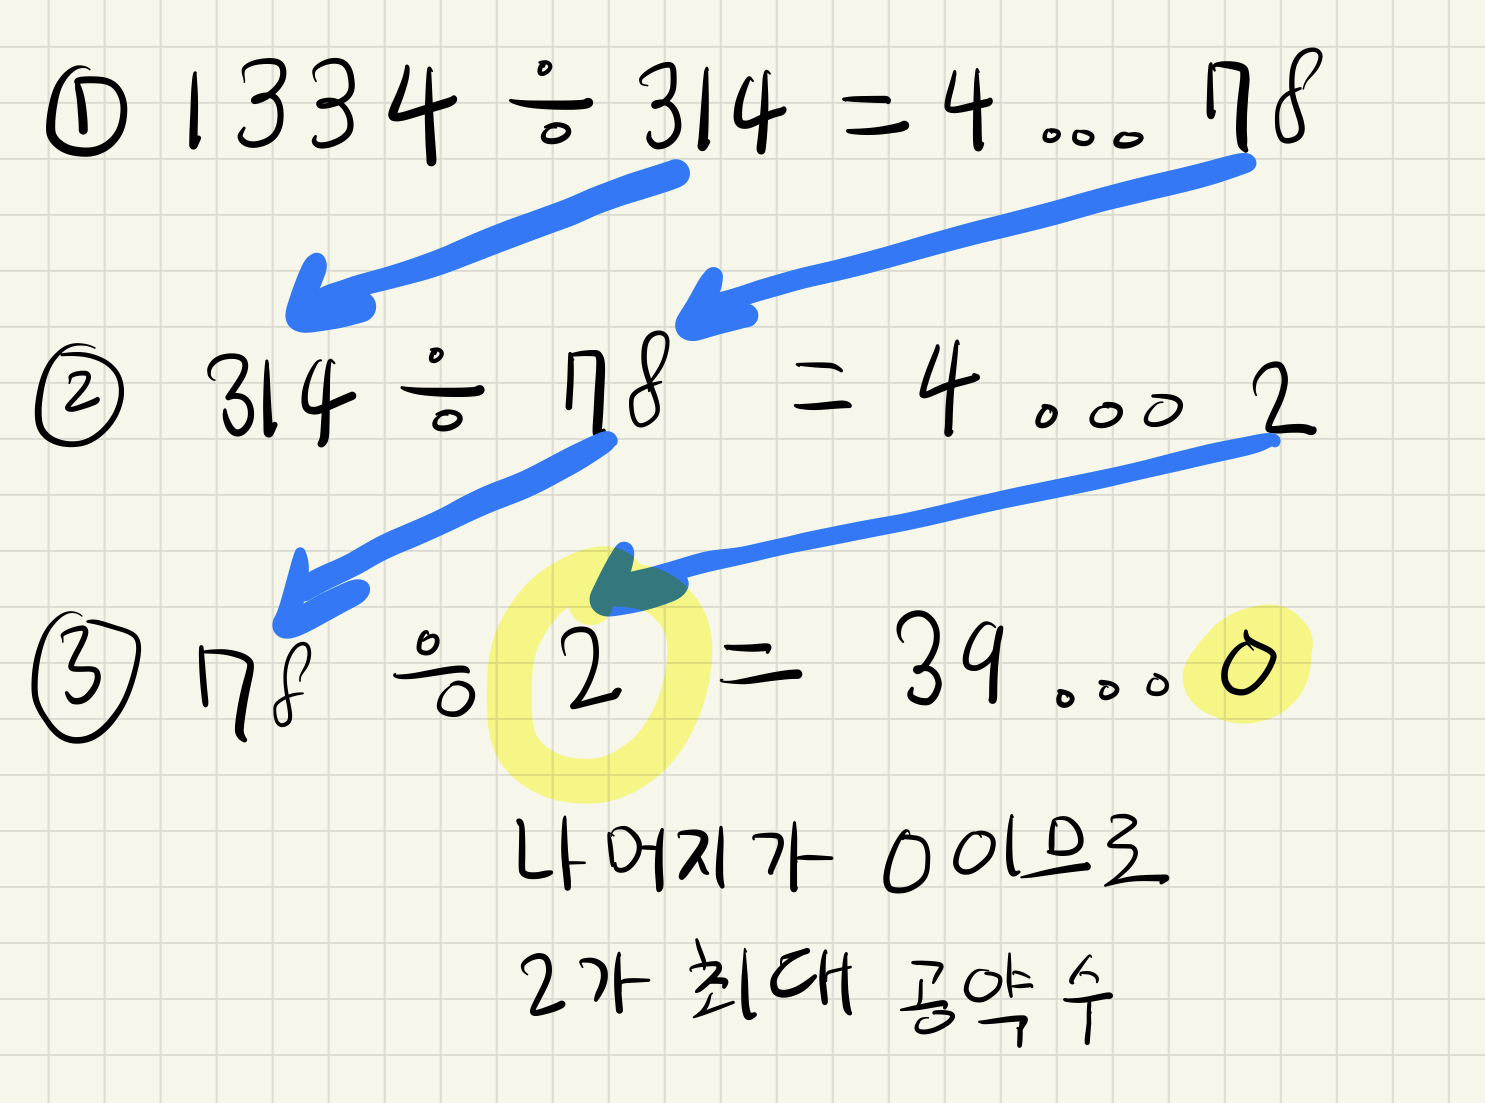 ① 1334 ÷ 314 = 4 ... 78
② 314 ÷ 78 = 4 ... 2
③ 78 ÷ 2 = 39 ... 0
나머지가 0이므로
2가 최대 공약수